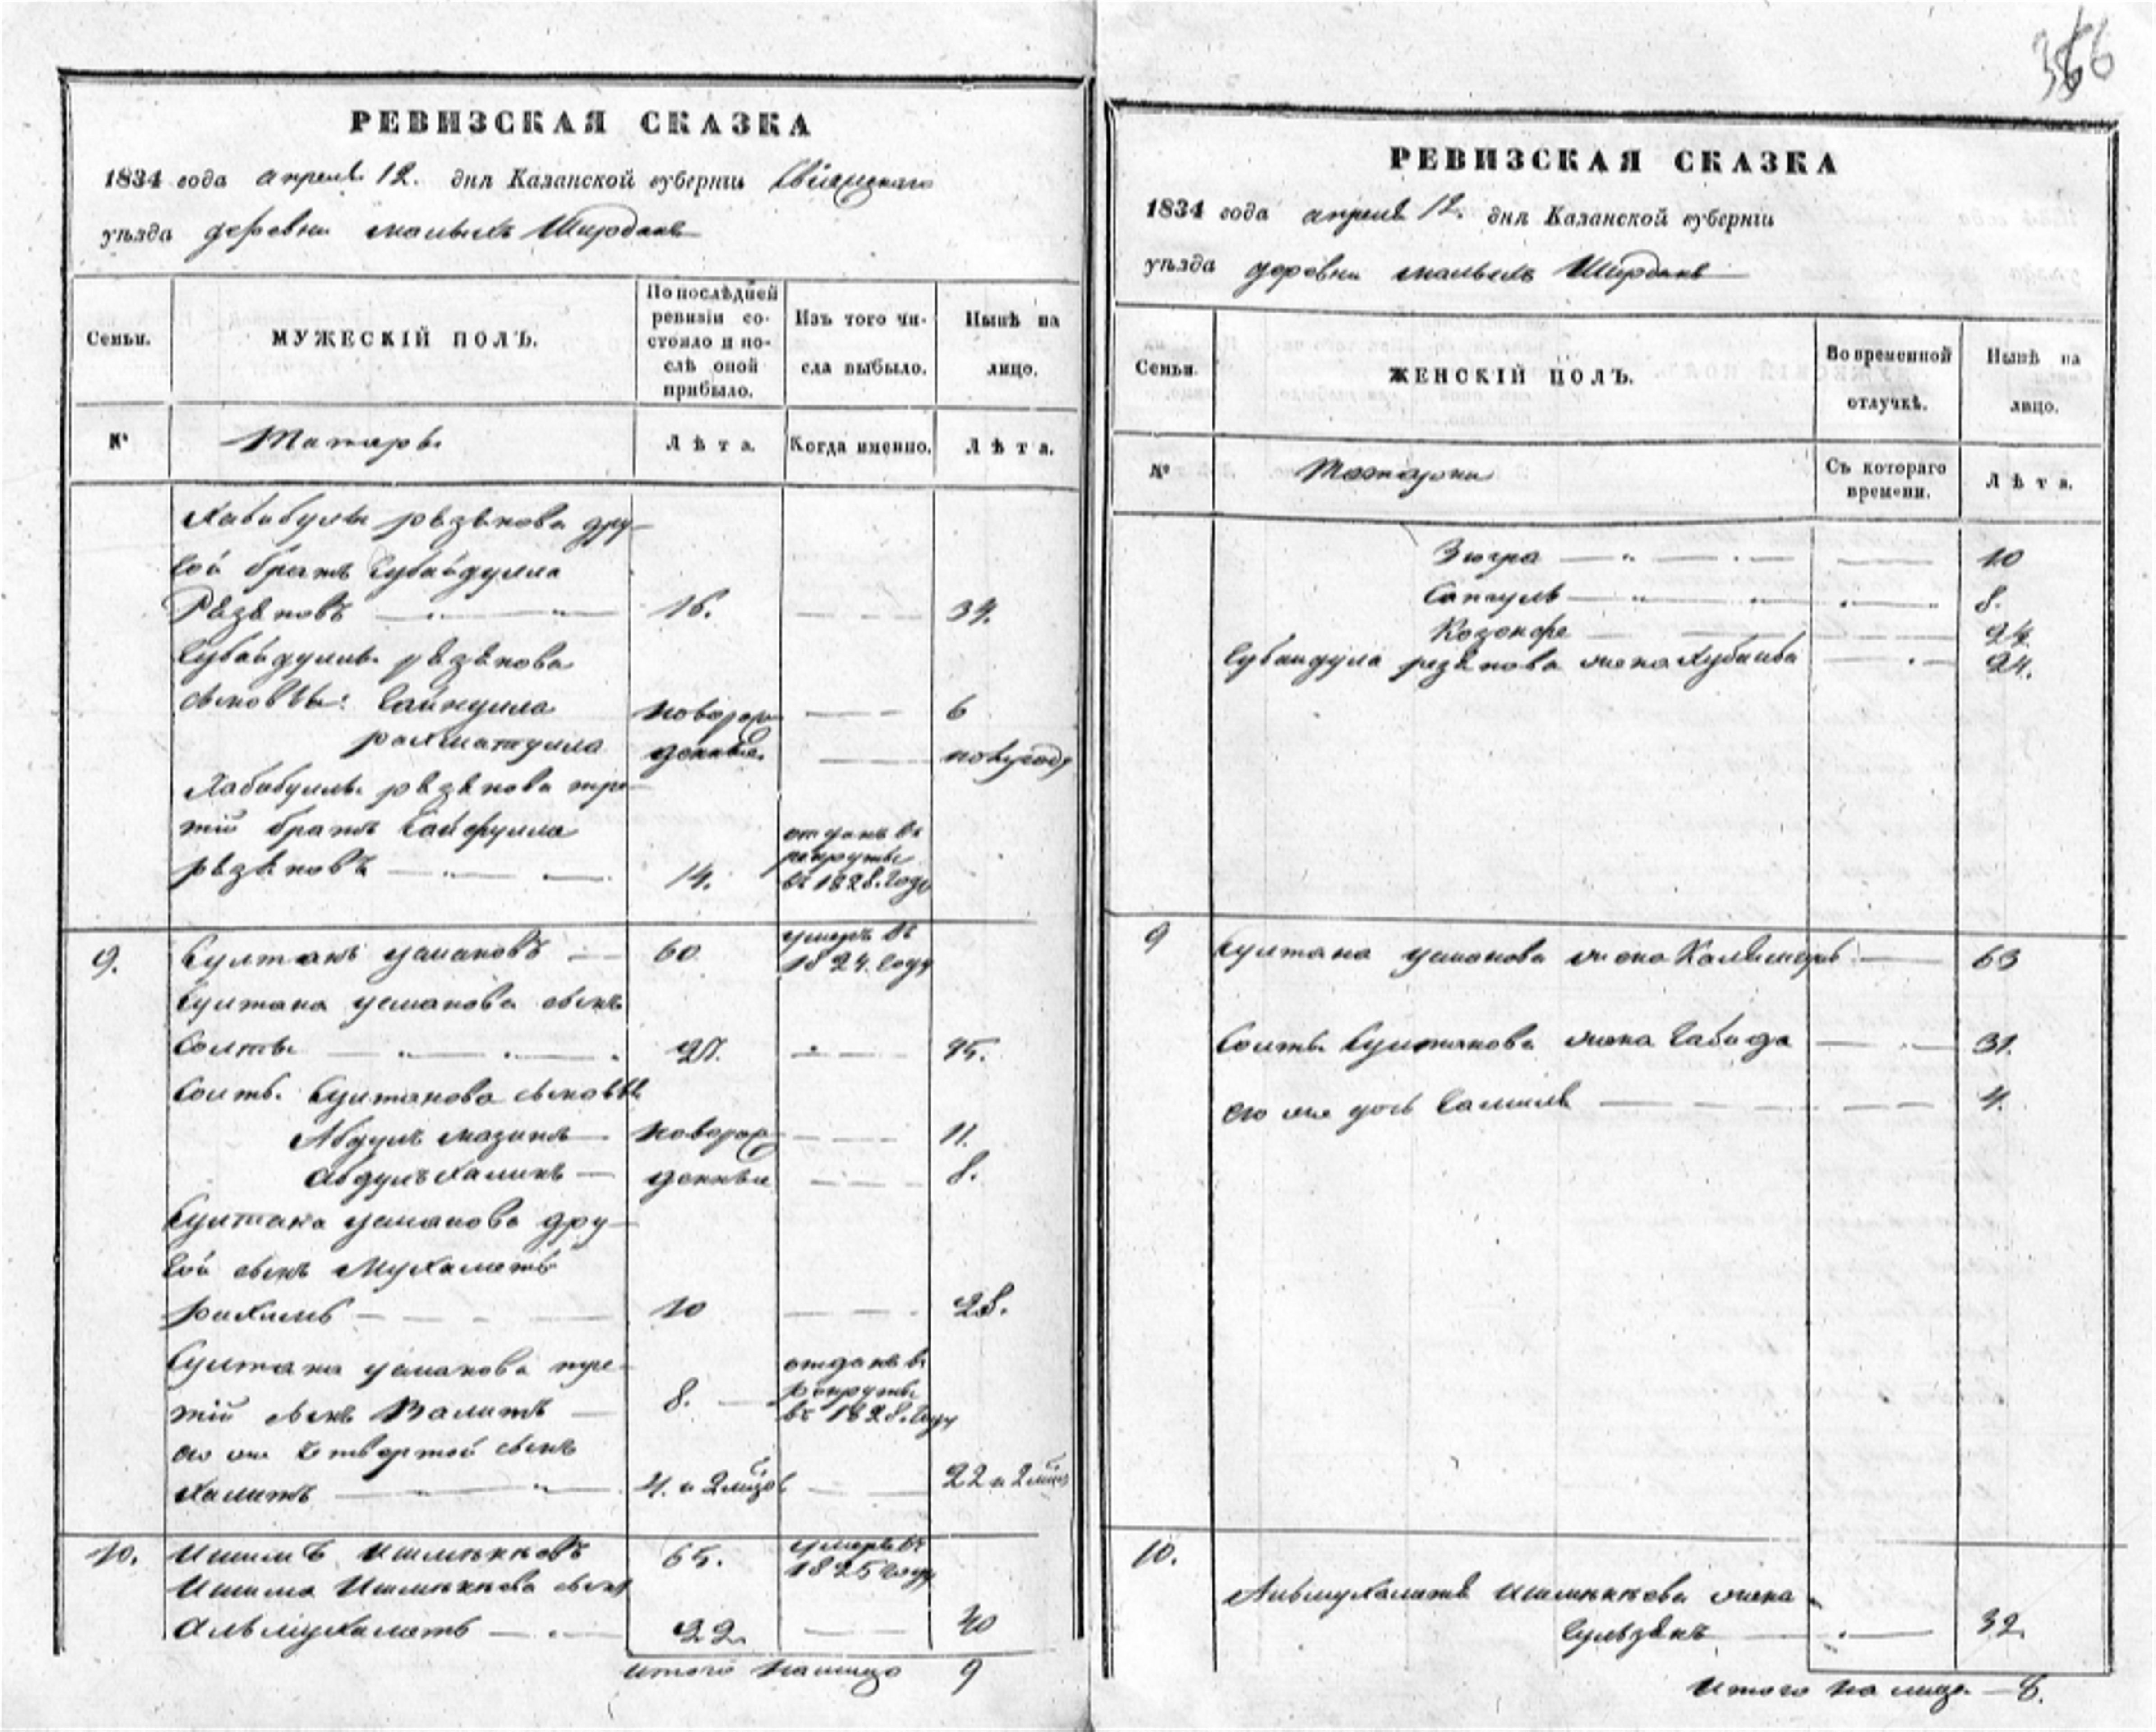 366
РЕВИЗСКАЯ СКАЗКА
1834 года апреля 12. дня Казанской губерніи Свіяжскаго
уѣзда деревни малыхъ Ширданъ
Семьи.
МУЖЕСКІЙ ПОЛЪ.
По послѣдней ревизіи состояло и послѣ оной прибыло.
Изъ того числа выбыло.
Нынѣ на лицо.
№
Татары
Лѣта.
Когда именно.
Лѣта.
Хабибуллы рѣзѣпова дру-
гой братъ Губайдулла
Рѣзѣповъ 16. 34.
Губайдуллы рѣзѣпова
сыновья: Сайпулла новорож 6
рахматулла денные. полугоду
Хабибуллы рѣзѣпова тре-
тій братъ Сайфулла отданъ въ рекруты
рѣзѣповъ 14. въ 1828. году
9. Султанъ усмановъ 60 умеръ въ 1824. году
Султана усманова сынъ
Солты 27. 45.
Солты Султанова сыновья
Абдулъ мазинъ новорож 11.
Абдулъ халикъ денные 8.
Султана усманова дру-
гой сынъ Мухаметъ
рахимъ 10 28.
Султана усманова тре-
тій сынъ Валитъ 8. отданъ въ рекруты въ 1828. году
его же четвертой сынъ
Халитъ 4. и 2 мѣсов 22 и 2 мѣс
10. Ишимъ Ишмѣкѣевъ 65. умеръ въ 1825 году
Ишима Ишмѣкѣева сынъ
Альмухаметъ 22. 40
Итого на лицо 9
РЕВИЗСКАЯ СКАЗКА
1834 года апреля 12. дня Казанской губерніи
уѣзда деревни малыхъ Ширданъ
Семьи.
ЖЕНСКІЙ ПОЛЪ.
Во временной отлучкѣ.
Нынѣ на лицо.
№
Татарки
Съ котораго времени.
Лѣта.
Зюгра 10
Сангуль 8.
24.
Губайдулла резѣпова жена Хубаиба 24.
9 Султана усманова жена 63
Солты Султанова жена Сабида 31.
его же дочь Салиль 4.
10.
Альмухаметя Ишмѣкѣева жена
Гульзянъ 32.
Итого на лицо 8.